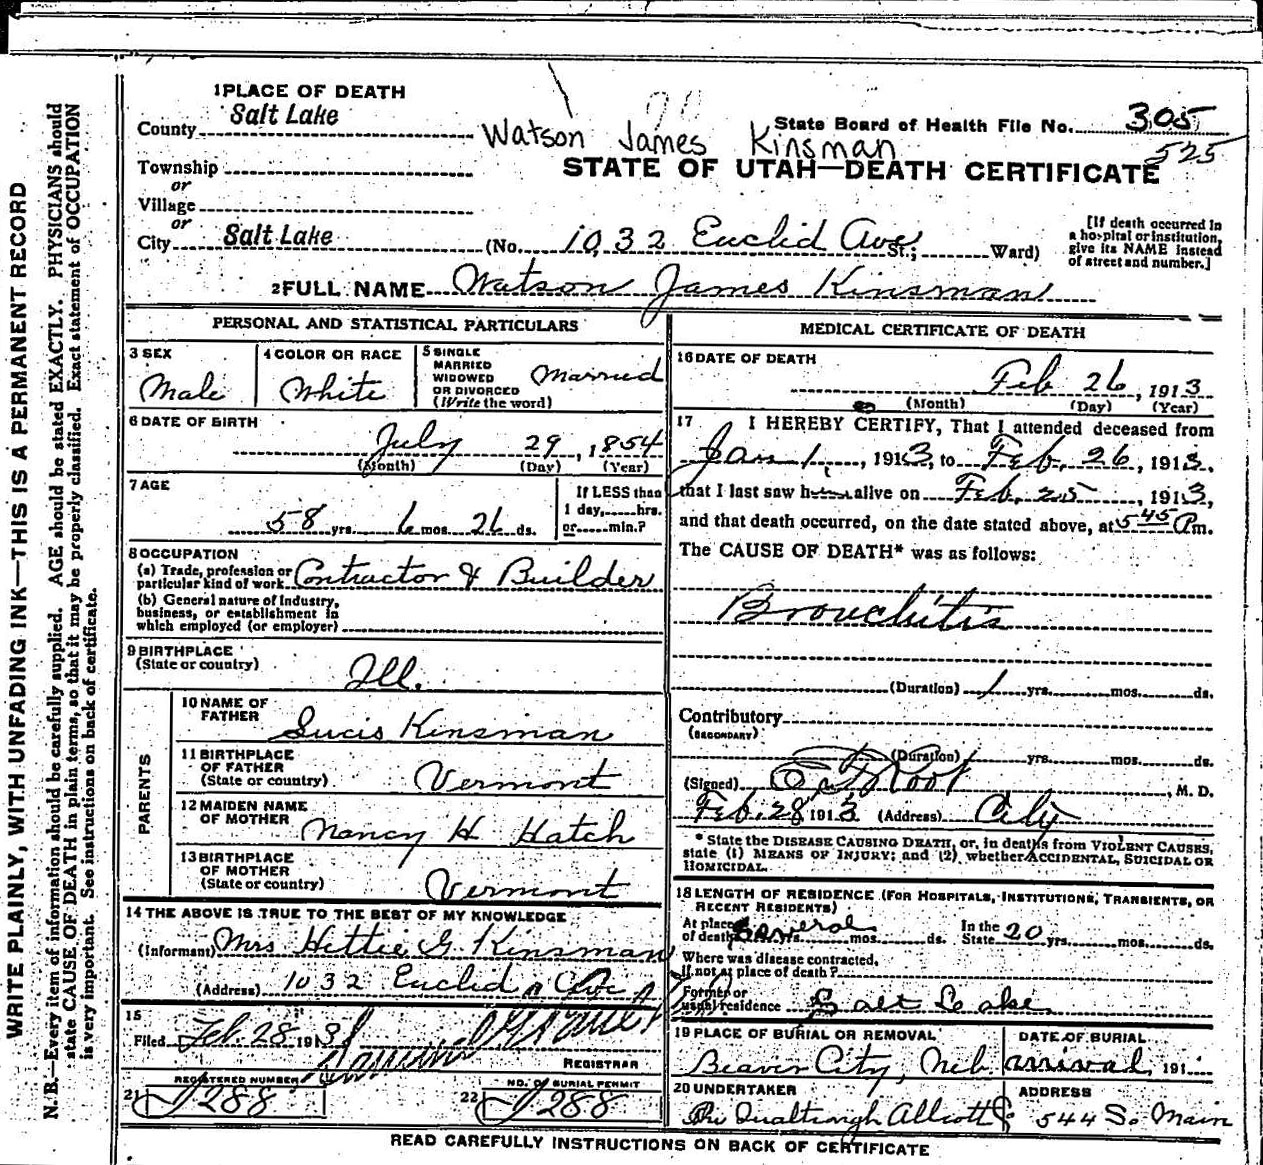 WRITE PLAINLY, WITH UNFADING INK—THIS IS A PERMANENT RECORD
N. B.—Every item of information should be carefully supplied. AGE should be stated EXACTLY. PHYSICIANS should
state CAUSE OF DEATH in plain terms, so that it may be properly classified. Exact statement of OCCUPATION
is very important. See instructions on back of certificate.
1 PLACE OF DEATH
County Salt Lake
State Board of Health File No. 305
Watson James Kinsman
525
STATE OF UTAH—DEATH CERTIFICATE
Township
or
Village
or
City Salt Lake (No. 1032 Euclid Ave St.; Ward)
[If death occurred in
a hospital or institution,
give its NAME instead
of street and number.]
2 FULL NAME Watson James Kinsman
PERSONAL AND STATISTICAL PARTICULARS
3 SEX
Male
4 COLOR OR RACE
White
5 SINGLE
MARRIED
WIDOWED
OR DIVORCED
(Write the word)
Married
6 DATE OF BIRTH
July 29, 1854
(Month) (Day) (Year)
7 AGE
58 yrs. 6 mos. 26 ds.
If LESS than
1 day, hrs.
or min.?
8 OCCUPATION
(a) Trade, profession or
particular kind of work Contractor & Builder
(b) General nature of industry,
business, or establishment in
which employed (or employer)
9 BIRTHPLACE
(State or country)
Ill.
PARENTS
10 NAME OF
FATHER
Kinsman
11 BIRTHPLACE
OF FATHER
(State or country)
Vermont
12 MAIDEN NAME
OF MOTHER
Nancy H Hatch
13 BIRTHPLACE
OF MOTHER
(State or country)
Vermont
14 THE ABOVE IS TRUE TO THE BEST OF MY KNOWLEDGE
(Informant) Mrs Hettie G. Kinsman
(Address) 1032 Euclid Ave
15
Filed Feb. 28 1913
REGISTRAR
REGISTERED NUMBER
21 J 288
NO. OF BURIAL PERMIT
22 J 288
MEDICAL CERTIFICATE OF DEATH
16 DATE OF DEATH
Feb 26, 1913
(Month) (Day) (Year)
17 I HEREBY CERTIFY, That I attended deceased from
Jan 1, 1913, to Feb. 26, 1913,
that I last saw h alive on Feb. 25, 1913,
and that death occurred, on the date stated above, at 5 45 P m.
The CAUSE OF DEATH* was as follows:
Bronchitis
(Duration) 1 yrs. mos. ds.
Contributory
(SECONDARY)
(Duration) yrs. mos. ds.
(Signed) Root, M. D.
Feb. 28, 1913 (Address) City
* State the DISEASE CAUSING DEATH, or, in deaths from VIOLENT CAUSES,
state (1) MEANS OF INJURY; and (2) whether ACCIDENTAL, SUICIDAL OR
HOMICIDAL.
18 LENGTH OF RESIDENCE (FOR HOSPITALS, INSTITUTIONS, TRANSIENTS, OR
RECENT RESIDENTS)
At place
of death Several yrs. mos. ds. In the State 20 yrs. mos. ds.
Where was disease contracted,
if not at place of death?
Former or
usual residence Salt Lake
19 PLACE OF BURIAL OR REMOVAL
Beaver City, Neb.
DATE OF BURIAL
arrival, 191
20 UNDERTAKER
ADDRESS
544 So Main
READ CAREFULLY INSTRUCTIONS ON BACK OF CERTIFICATE